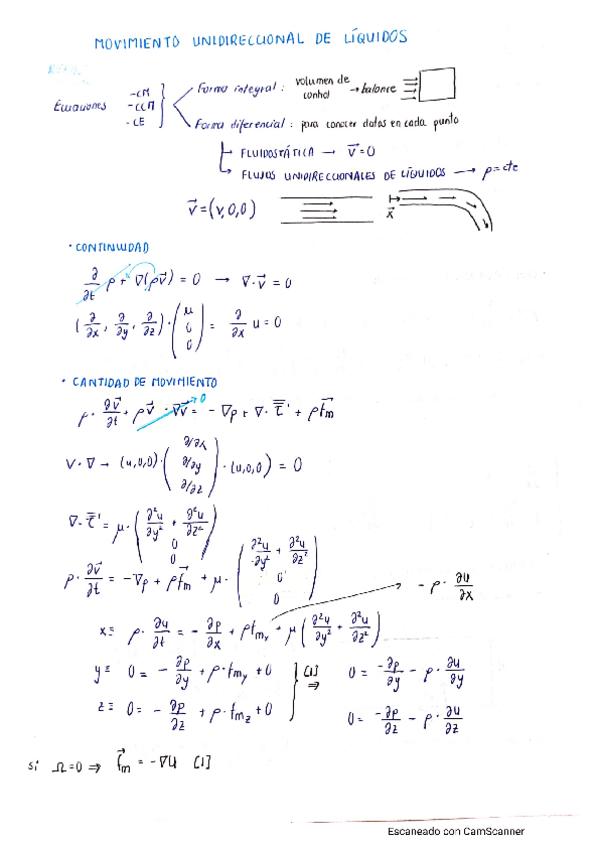 MOVIMIENTO UNIDIRECCIONAL DE LÍQUIDOS
Ecuaciones
-CM
-CCM
-CE
Forma integral: volumen de control → balance
Forma diferencial: para conocer datos en cada punto
↳ FLUIDOSTÁTICA → v⃗=0
↳ FLUJOS UNIDIRECCIONALES DE LÍQUIDOS → ρ=cte
v⃗=(v,0,0)
x⃗
· CONTINUIDAD
∂/∂t ρ + ∇(ρv⃗) = 0 → ∇·v⃗ = 0
(∂/∂x, ∂/∂y, ∂/∂z)·(u 0 0) = ∂/∂x u = 0
· CANTIDAD DE MOVIMIENTO
ρ·∂v⃗/∂t + ρv⃗·∇v⃗ →0 = -∇p + ∇·τ̿' + ρf⃗m
V·∇ → (u,0,0)·(∂/∂x ∂/∂y ∂/∂z)·(u,0,0) = 0
∇·τ̿' = μ·(∂²u/∂y² + ∂²u/∂z² 0 0)
ρ·∂v⃗/∂t = -∇p + ρf⃗m + μ·(∂²u/∂y² + ∂²u/∂z² 0 0)
-ρ·∂u/∂x
x≡ ρ·∂u/∂t = -∂p/∂x + ρfmx + μ(∂²u/∂y² + ∂²u/∂z²)
y≡ 0 = -∂p/∂y + ρ·fmy + 0 [1] ⇒ 0 = -∂p/∂y - ρ·∂u/∂y
z≡ 0 = -∂p/∂z + ρ·fmz + 0 0 = -∂p/∂z - ρ·∂u/∂z
si Ω=0 ⇒ f⃗m = -∇U [1]
Escaneado con CamScanner